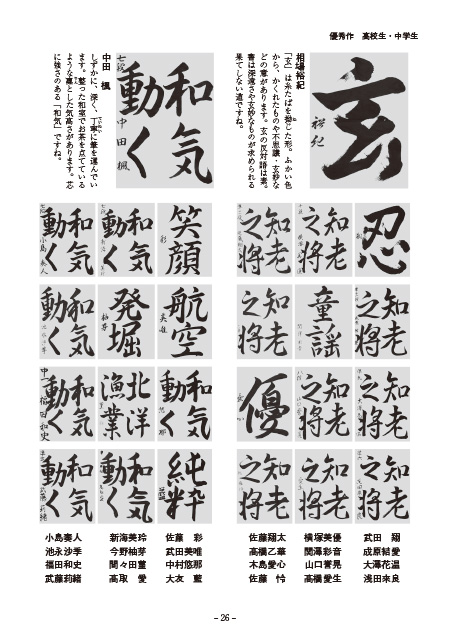 優秀作　高校生・中学生
玄
裕紀
相場裕紀
「玄」は糸たばを拗じた形。ふかい色
から、かくれたものや不思議・玄妙な
どの意があります。玄の反対語は素。
書は深遠さや玄妙なものが求められる
果てしない道ですね。
和気
動く
七段 中田 楓
中田　楓
しずかに、深く、丁寧に筆を運んでい
ます。整った和室でお茶を点てている
ような凛とした気高さがあります。芯
に強さのある「和気」ですね。
忍
知老
之将
知老
之将
知老
之将
童謡
知老
之将
知老
之将
知老
之将
優
知老
之将
知老
之将
知老
之将
笑顔
彩
和気
動く
和気
動く
航空
発掘
和気
動く
和気
動く
北洋
漁業
和気
動く
純粋
和気
動く
和気
動く
武田　翔
成原結愛
大澤花温
浅田来良
横塚美優
関澤彩音
山口誉晃
高橋愛生
佐藤翔太
高橋乙華
木島愛心
佐藤　怜
佐藤　彩
武田美唯
中村悠那
大友　藍
新海美玲
今野柚芽
間々田菫
高取　愛
小島奏人
池永沙季
福田和史
武藤莉緒
- 26 -